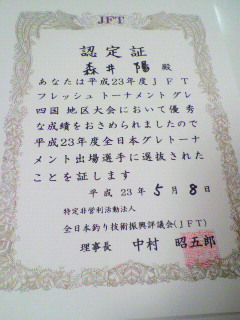 JFT
認定証
森井 陽 殿
あなたは平成23年度JFT
フレッシュトーナメントグレ
四国地区大会において優秀
な成績をおさめられましたので
平成23年度全日本グレトーナ
メント出場選手に選抜された
ことを証します
平成 23年 5月 8日
特定非営利活動法人
全日本釣り技術振興評議会(JFT)
理事長 中村 昭五郎